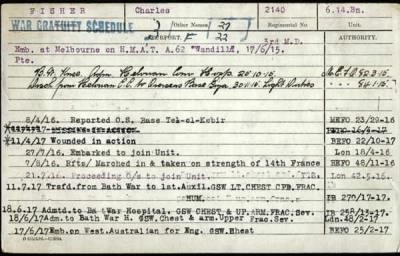 FISHER Charles 2140 6.14.Bn.
WAR GRATUITY SCHEDULE 27
Surname Other Names Regimental No. Unit
REPORT. F 22 3rd M.D.
Emb. at Melbourne on H.M.A.T. A.62 "Wandilla", 17/6/15. AUTHORITY.
Pte.
20.10.15
30.11.15 Light Duties
8/4/16. Reported O.S. Base Tel-el-Kebir MEFO 23/29-16
11/4/17 Wounded in action BEFO 22/10-17
27/7/16. Embarked to join Unit. Lon 18/4-16
7/8/16. Rfts/ Marched in & taken on strength of 14th France BEFO 48/11-16
21.7.16. Proceeding O/s to join Unit. Lon 42.5.16.
11.7.17 Trsfd.from Bath War to 1st.Auxil.GSW LT.CHEST CPD.FRAC. HUM. IB 270/17-17.
18.6.17 Admtd.to Bath War Hospital. GSW CHEST & UP.ARM.FRAC.SEV. IB 258/13-17.
18/6/17 Adm.to Bath War H. GSW.Chest & arm.Upper Frac.Sev. BEFO 98/2-17
17/6/17 Emb.on West.Australian for Eng. GSW.Bhest BEFO 25/2-17